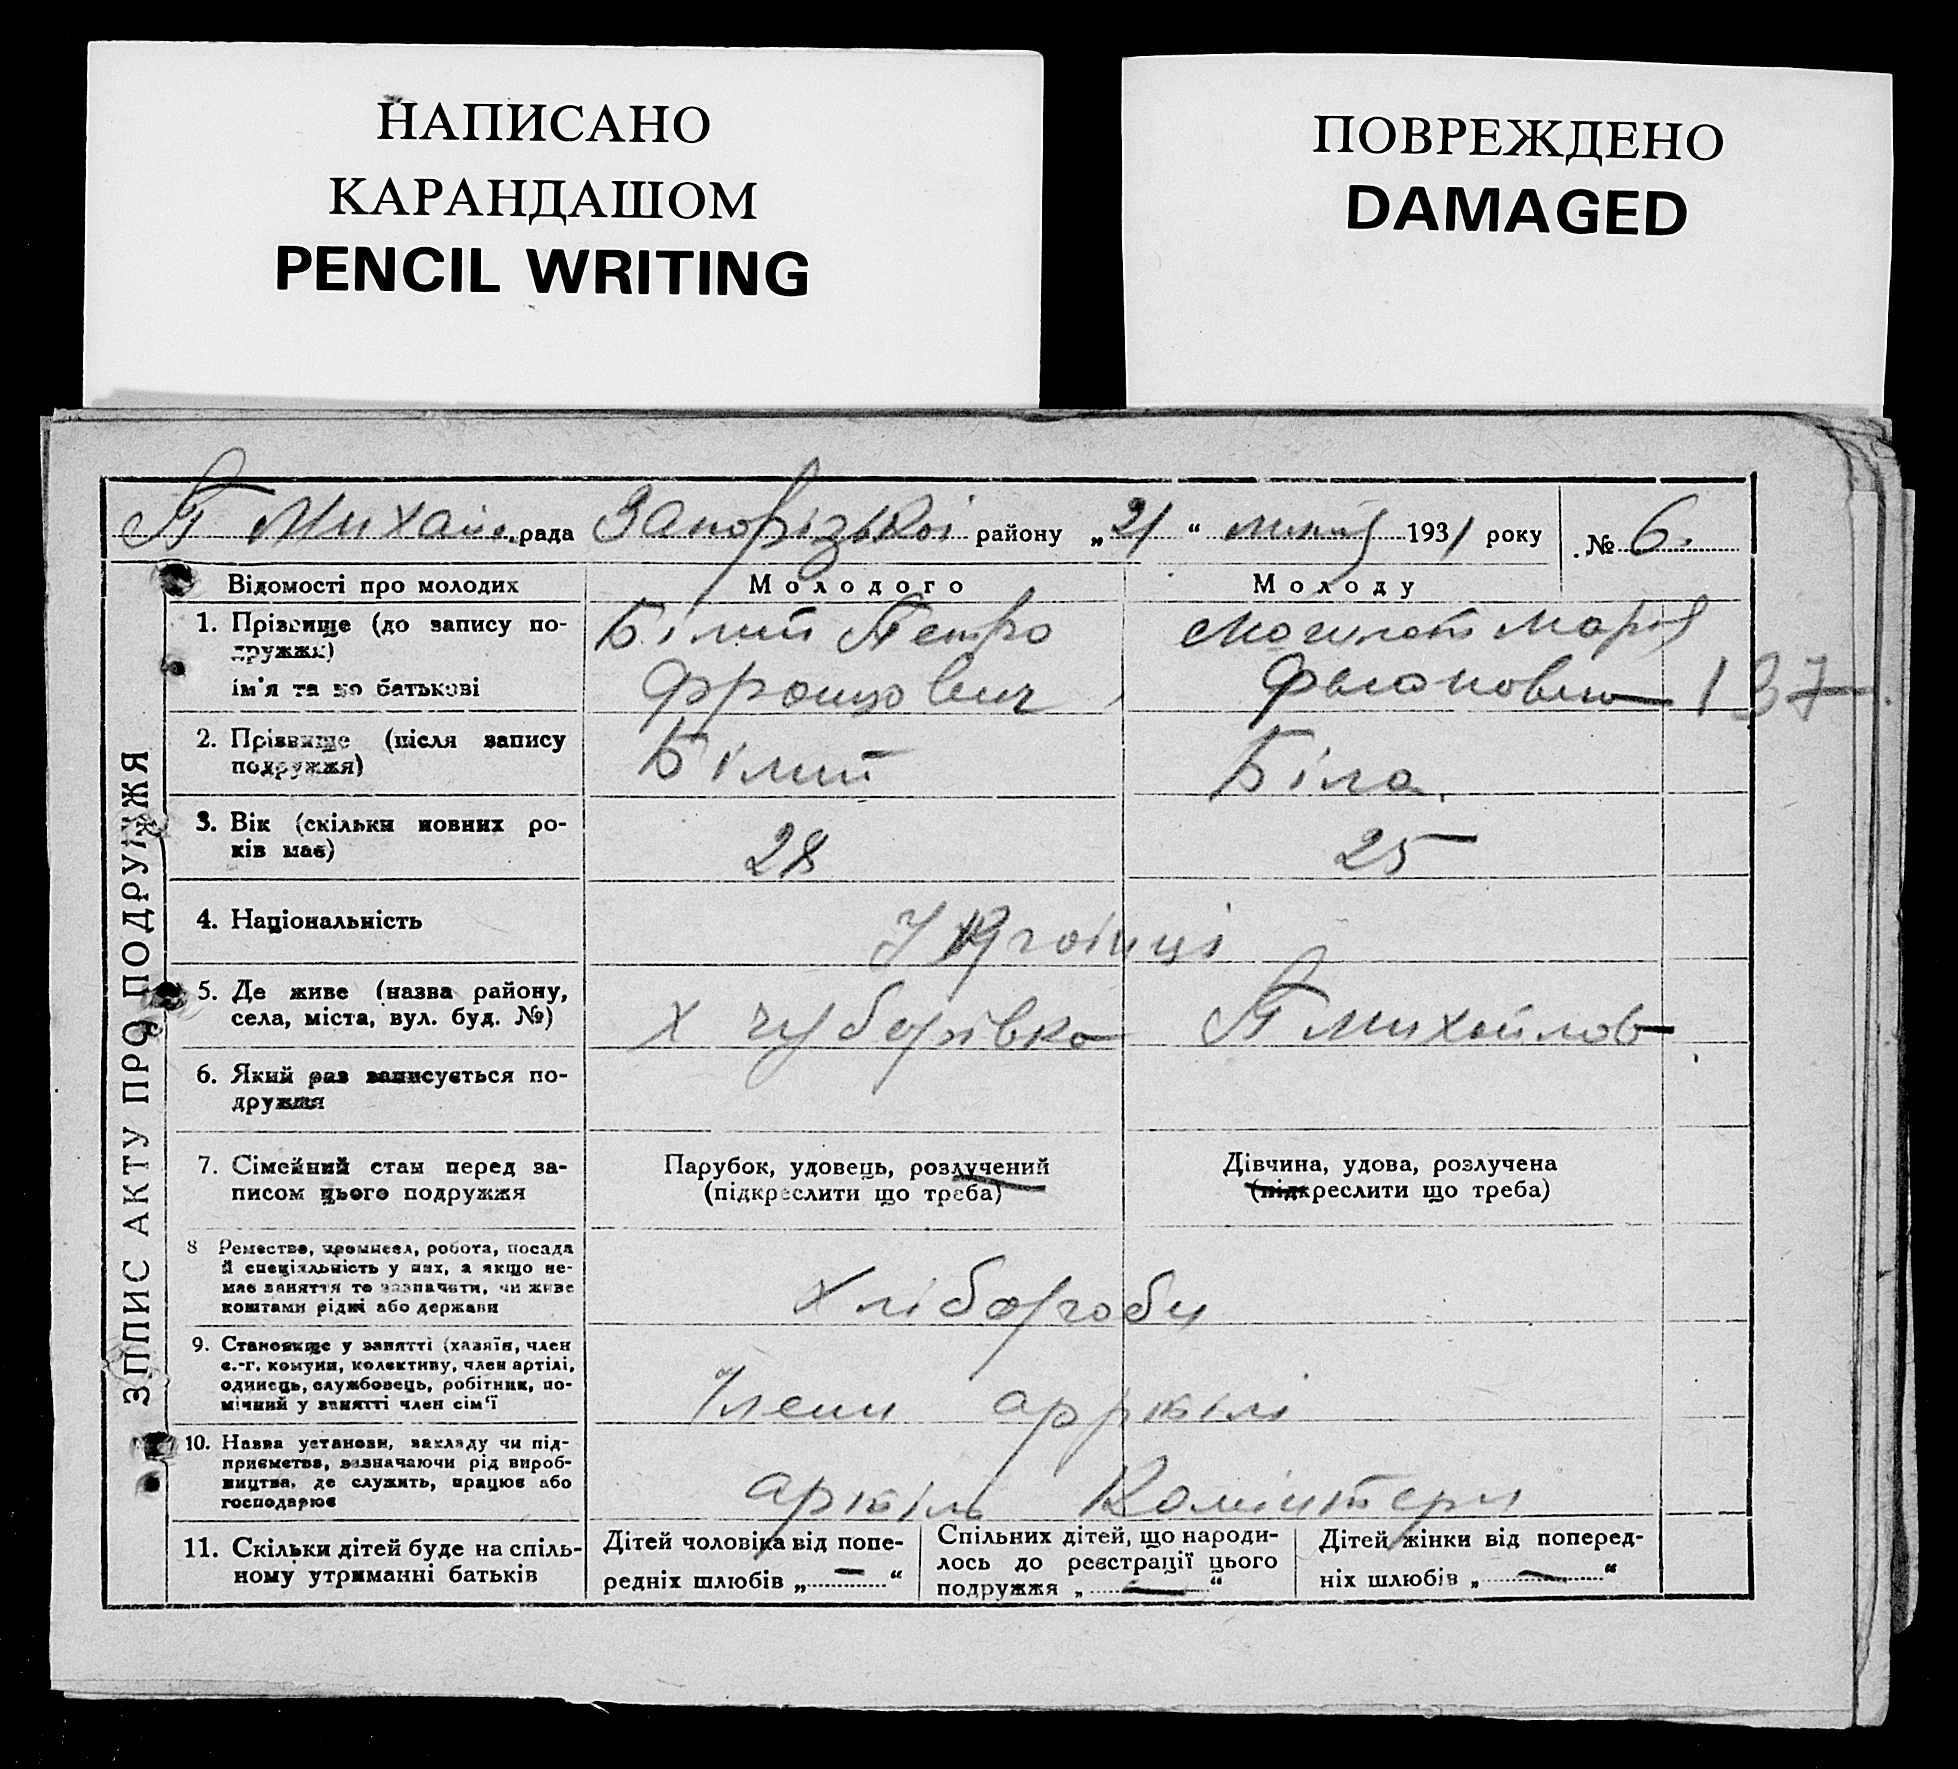 НАПИСАНО
КАРАНДАШОМ
PENCIL WRITING
ПОВРЕЖДЕНО
DAMAGED
П Михайл. рада Запорізької району „21“ 1931 року № 6.
ЗППИС АКТУ ПРО ПОДРУЖЖЯ
Відомості про молодих
Молодого
Молоду
1. Прізвище (до запису по-
дружжя)
ім'я та по батькові
Білий Петро
Францович
Марія
137
2. Прізвище (після запису
подружжя)
Білий
Біла.
3. Вік (скільки повних ро-
ків має)
28
25
4. Національність
Українці
5. Де живе (назва району,
села, міста, вул. буд. №)
х Чубарівка
П Михайлов
6. Який раз записується по-
дружжя
7. Сімейний стан перед за-
писом цього подружжя
Парубок, удовець, розлучений
(підкреслити що треба)
Дівчина, удова, розлучена
(підкреслити що треба)
8 Ремество, промисел, робота, посада
й спеціяльність у них, а якщо не-
має заняття то зазначити, чи живе
коштами рідні або держави
Хлібороби
9. Становище у занятті (хазяїн, член
с.-г. комуни, колективу, член артілі,
одинець, службовець, робітник, по-
мічний у занятті член сім'ї
Члени артілі
10. Назва установи, закладу чи під-
приємства, зазначаючи рід вироб-
ництва, де служить, працює або
господарює
артіль Комінтерн
11. Скільки дітей буде на спіль-
ному утриманні батьків
Дітей чоловіка від попе-
редніх шлюбів „—“
Спільних дітей, що народи-
лось до реєстрації цього
подружжя „—“
Дітей жінки від поперед-
ніх шлюбів „—“